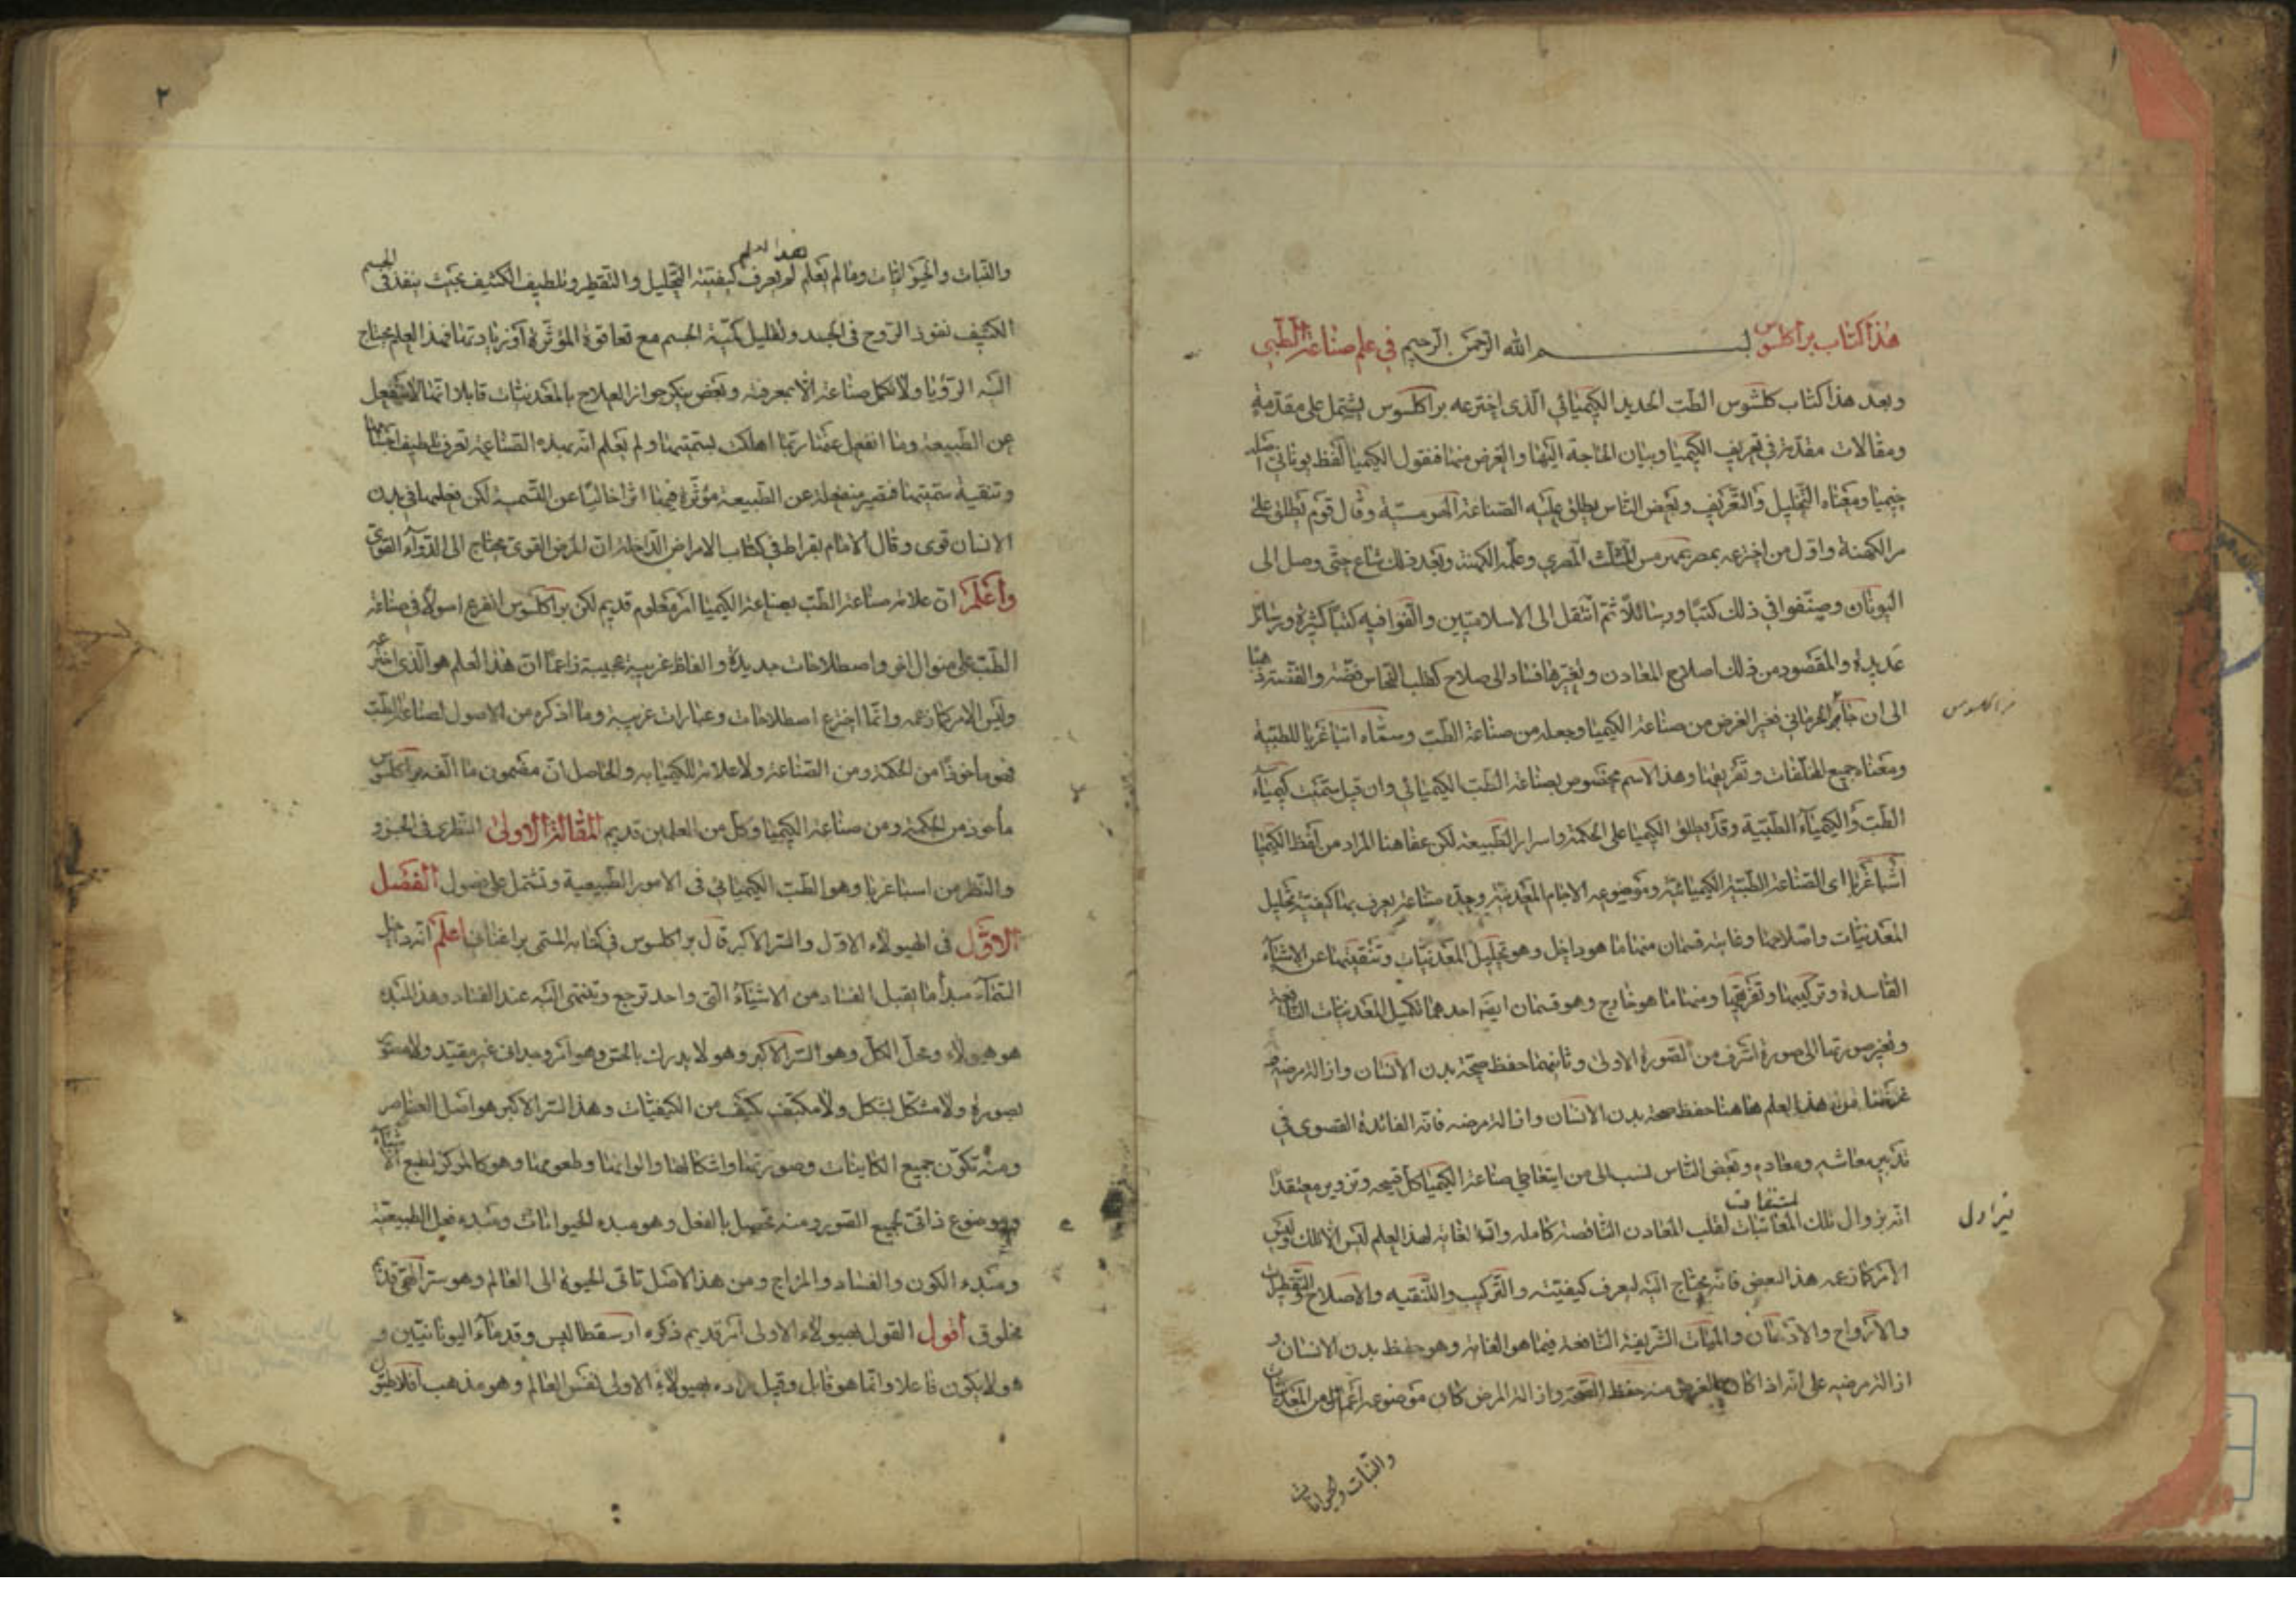 هذا كتاب براكلسوس بسم الله الرحمن الرحيم في علم صناعة الطبي
وبعد هذا كتاب كلسوس الطب الجديد الكيميائي الذي اخترعه براكلسوس يشتمل على مقدمة
ومقالات مقدمة في تعريف الكيميا وبيان الحاجة اليها والغرض منها فنقول الكيميا لفظ يوناني اصله
خيميا ومعناه التحليل والتفريق وبعض الناس يطلق عليه الصناعة الهرمسية وقال قوم يطلق على
من الكهنة واول من اخترعه بمصر هرمس المثلث المصري وعلمه الكهنة وبعد ذلك شاع حتى وصل الى
اليونان وصنفوا في ذلك كتبا ورسائلا ثم انتقل الى الاسلاميين والفوا فيه كتبا كثيرة ورسائل
عديدة والمقصود من ذلك اصلاح المعادن وتغيرها فساد الى صلاح كقلب النحاس فضة والفضة ذهبا
الى ان الجرماني فغير الغرض من صناعة الكيميا وجعله من صناعة الطب وسماه اسباغريا للطبية
ومعناه جميع المتفرقات وتفريقها وهذا الاسم مخصوص بصناعة الطب الكيميائي وان قيل سميت كيمياء
الطب والكيمياء الطبية وقد يطلق الكيميا على الحكمة واسرار الطبيعة لكن عندنا هنا المراد من لفظ الكيميا
اسباغريا اى الصناعة الطبية الكيميائية وموضوعه الاجسام المعدنية وحده صناعة يعرف بها كيفية تحليل
المعدنيات واصلاحها وغايته قسمان منها ما هو داخل وهو تحليل المعدنيات وتنقيتها عن الاشياء
الفاسدة وتركيبها وتفريقها ومنها ما هو خارج وهو قسمان ايضا احدهما تكميل المعدنيات الناقصة
وتغير صورتها الى صورة اشرف من الصورة الاولى وثانيهما حفظ صحة بدن الانسان وازالة مرضه
غرضنا من هذا العلم هاهنا حفظ صحة بدن الانسان وازالة مرضه فانه الفائدة القصوى في
تدبير معاشه ومعاده وبعض الناس نسب الى من يتعاطى صناعة الكيميا كل قبيحه وتزوير معتقدا
انه يزوال تلك لقلب المعادن الناقصة كاملة وانه الغاية لهذا العلم ليس الا تلك وليس
الامر كما زعمه هذا البعض فانه يحتاج اليه ليعرف كيفيته والتركيب والتنقيه والاصلاح والتقطير
والارواح والادهان والمياه الشريفة النافعة فيما هو الغاية وهو حفظ بدن الانسان و
ازالة مرضه على انه اذا كان الغرض منه حفظ الصحة وازالة المرض كان موضوعه اعم من المعدنيات
والنبات والحيوانات
براكلسوس
والنبات والحيوانات وما لم يعلم هذا العلم لم يعرف كيفية التحليل والتقطير وتلطيف الكثيف بحيث ينفذ في الجسم
الكثيف نفوذ الروح في الجسد وتقليل كمية الجسم مع بقا قوة المؤثرة او زيادتها فهذا العلم يحتاج
اليه ولا تكمل صناعة الا بمعرفته وبعض ينكر جواز العلاج بالمعدنيات قايلا انها لا تنفعل
عن الطبيعة وما انفعل عنها ربما اهلك بسميتها ولم يعلم انه بهذه الصناعة تعرف تلطيف
وتنقية سميتها فتصير منفعلة عن الطبيعة مؤثرة فيها اثرا خاليا عن السمية لكن فعلها في بدن
الانسان قوى وقال الامام بقراط في كتاب الامراض الداخلة ان المرض القوى يحتاج الى الدواء القوى
واعلم ان علاقة صناعة الطب بصناعة الكيميا امر معلوم قديم لكن براكلسوس اخترع اصولا في صناعة
الطب على منوال اخر واصطلاحات جديدة والفاظ غريبة عجيبة زاعما ان هذا العلم هو الذى اخترعه
وليس الامر كما زعمه وانما اخترع اصطلاحات وعبارات غريبة وما اذكره من الاصول لصناعة الطب
فهو ماخوذا من الحكمة ومن الصناعة ولا علاقة للكيميا به والحاصل ان مضمون ما الفه براكلسوس
مأخوذ من الحكمة ومن صناعة الكيميا وكل من العلمين قديم المقالة الاولى النظرى في الجزو
والنظر من اسباغريا وهو الطب الكيميائي في الامور الطبيعية وتشتمل على فصول الفصل
الاول في الهيولاء الاول والسر الاكبر قال براكلسوس في كتابه المسمى اعلم انه داخل
السماء مبدأ ما يقبل الفساد من الاشياء التى واحد ترجع وتنتهى اليه عند الفساد وهذا المبدء
هو هيولاء ومحل الكل وهو السر الاكبر وهو لا يدرك بالحس وهو امر غير مقيد ولا
بصورة ولا مشكل بشكل ولا مكيف بكيف من الكيفيات وهذا السر الاكبر هو اصل العناصر
ومنه تكون جميع الكاينات وصورتها واشكالها والوانها وطعومها وهو كالمركز لجميع الاشياء
وموضوع ذاتى لجميع الصور ومنه تحصل بالفعل وهو مبدء الحيوانات ومبدء فعل الطبيعة
ومبدء الكون والفساد والمزاج ومن هذا الاصل تاتى الحيوة الى العالم وهو سر
مخلوق اقول القول بهيولاء الاولى امر قديم ذكره ارسقطاليس وقدماء اليونانيين و
هو لا يكون فاعلا وانما هو قابل وقيل اراده بهيولاء الاولى نفس العالم وهو مذهب افلاطون